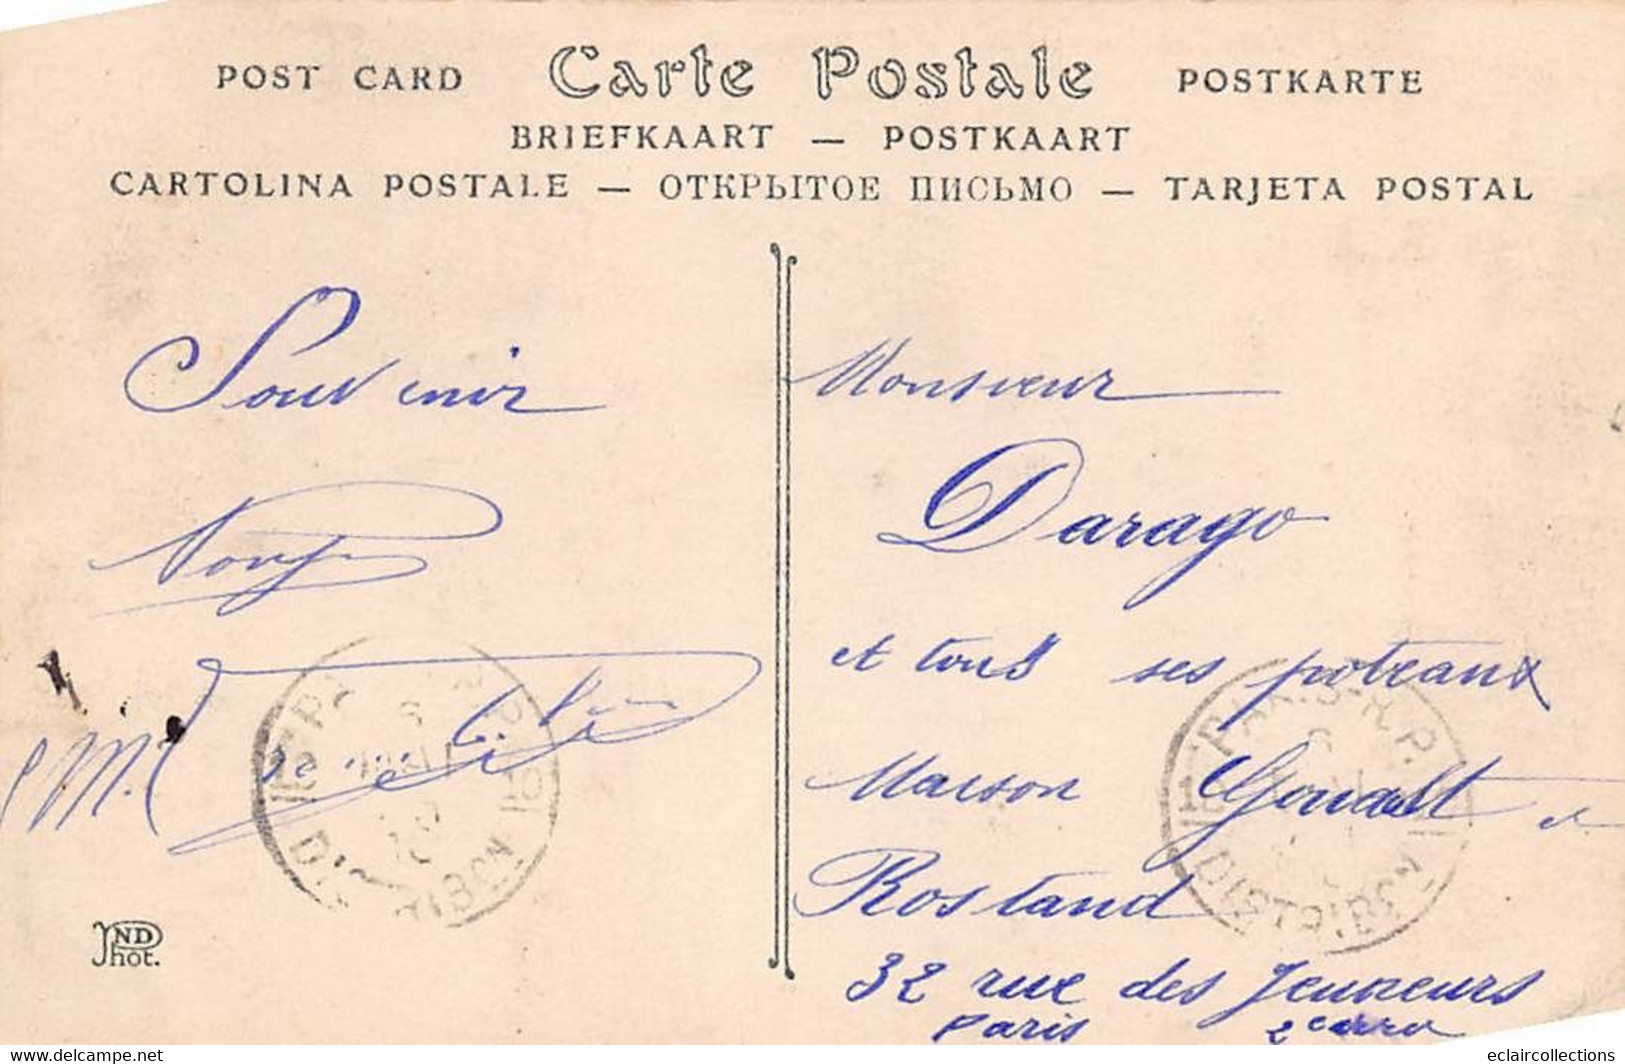 POST CARD Carte Postale POSTKARTE
BRIEFKAART — POSTKAART
CARTOLINA POSTALE — ОТКРЫТОЕ ПИСЬМО — TARJETA POSTAL
Souvenir
Monsieur
Darago
et tous ses poteaux
Maison Gouast et
Rostand
32 rue des Jeuneurs
Paris
PARIS R.P.
DISTRIBON
DISTRIBON
ND Phot.
eclaircollections
© delcampe.net